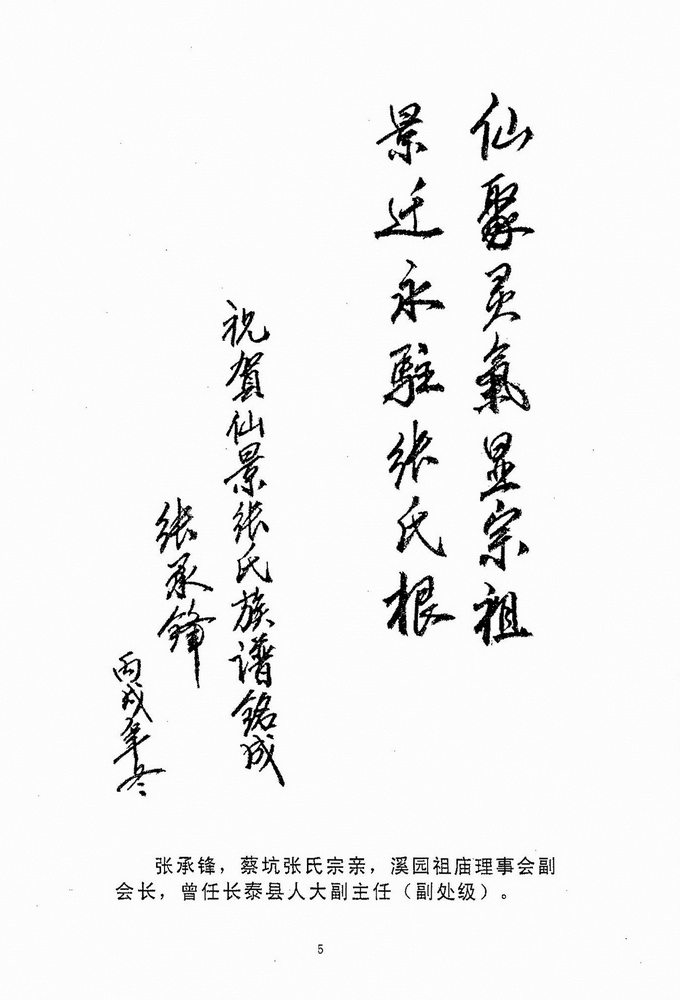 仙聚灵氣显宗祖
景迁永駐张氏根
祝贺仙景张氏族谱銘成
张承鋒
丙戌年冬
张承锋，蔡坑张氏宗亲，溪园祖庙理事会副
会长，曾任长泰县人大副主任（副处级）。
5